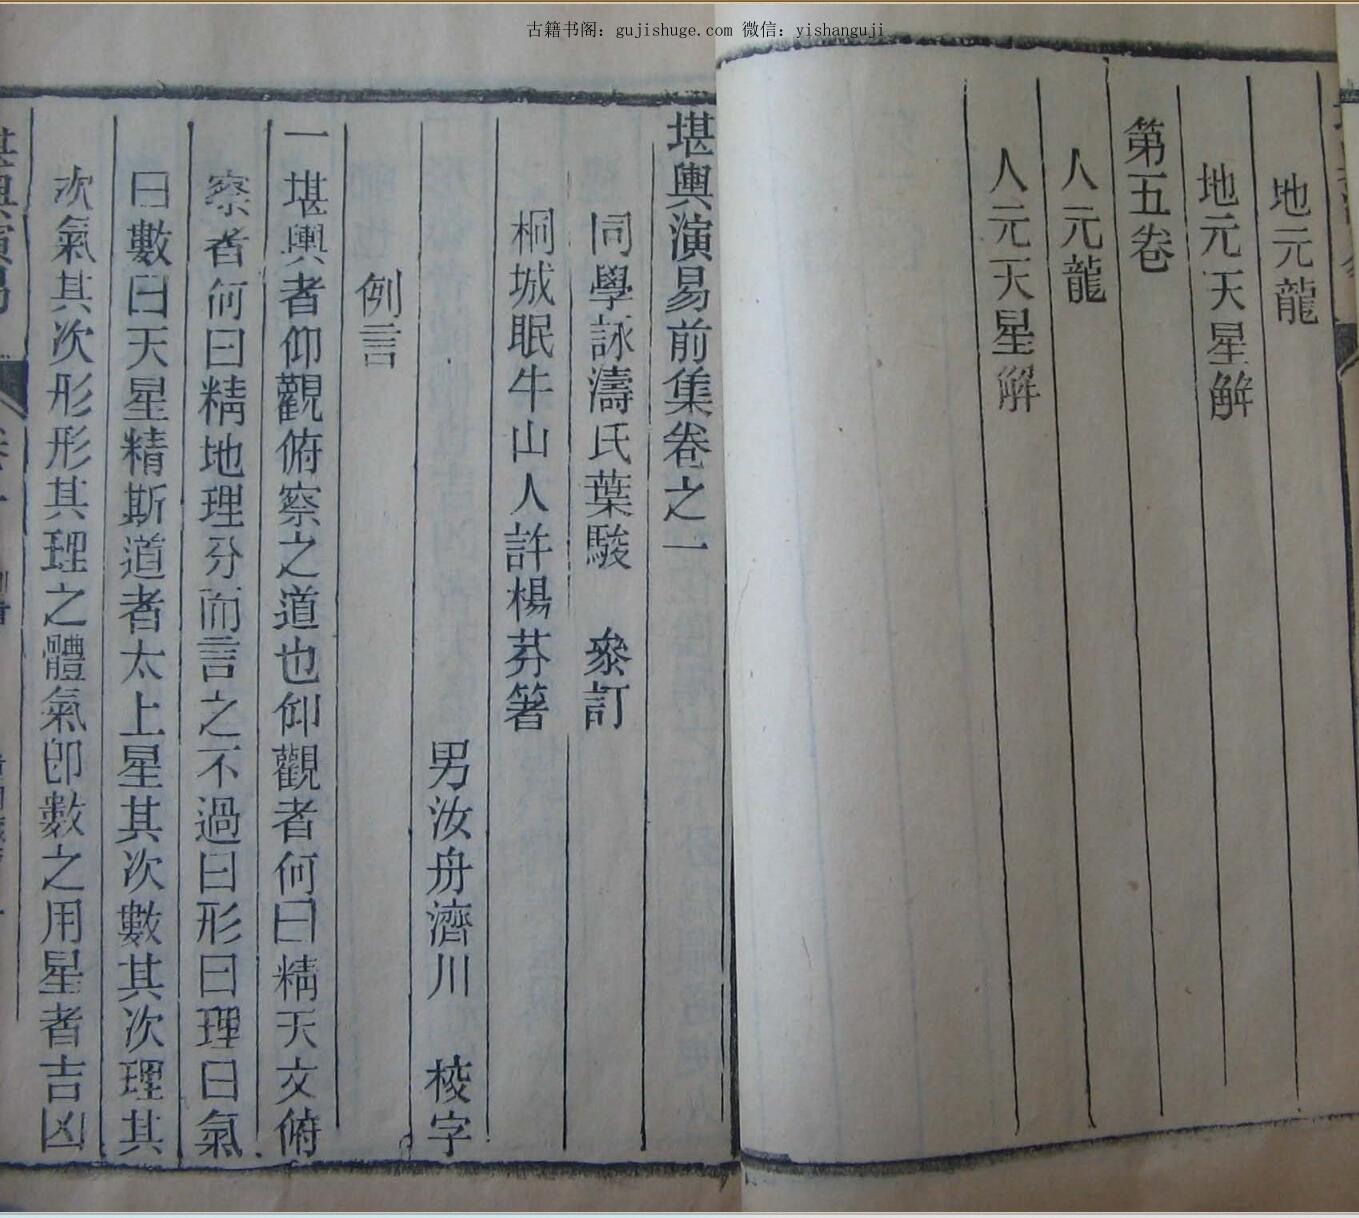 古籍书阁：gujishuge.com 微信：yishanguji
地元龍
地元天星解
第五卷
人元龍
人元天星解
堪輿演易前集卷之一
同學詠濤氏葉駿 叅訂
桐城眠牛山人許楊芬箸
男汝舟濟川 校字
例言
一堪輿者仰觀俯察之道也仰觀者何曰精天文俯
察者何曰精地理分而言之不過曰形曰理曰氣
曰數曰天星精斯道者太上星其次數其次理其
次氣其次形形其理之體氣卽數之用星者吉凶